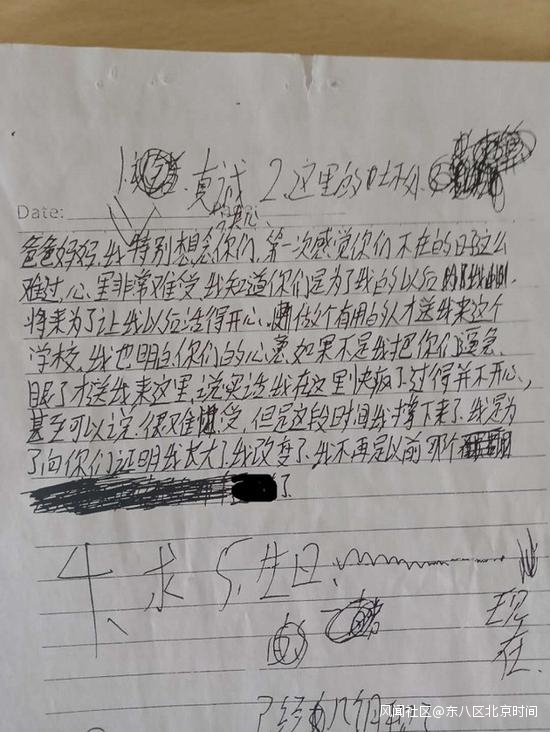 1. 真诚 2.这里的吐槽
Date:
爸爸妈妈,我特别想念你们,第一次感觉你们不在的日子这么
难过,心里非常难受,我知道你们是为了我的以后
将来为了让我以后活得开心,做个有用的人才送我来这个
学校,我也明白你们的心意,如果不是我把你们逼急
眼了才送我来这里,说实话,我在这里快疯了,过得并不开心,
甚至可以说很难受,但是这段时间我撑下来了,我是为
了向你们证明我长大了,我改变了,我不再是以前那个
了
求 5.生日
现
在
已经 几个月了
风闻社区@东八区北京时间